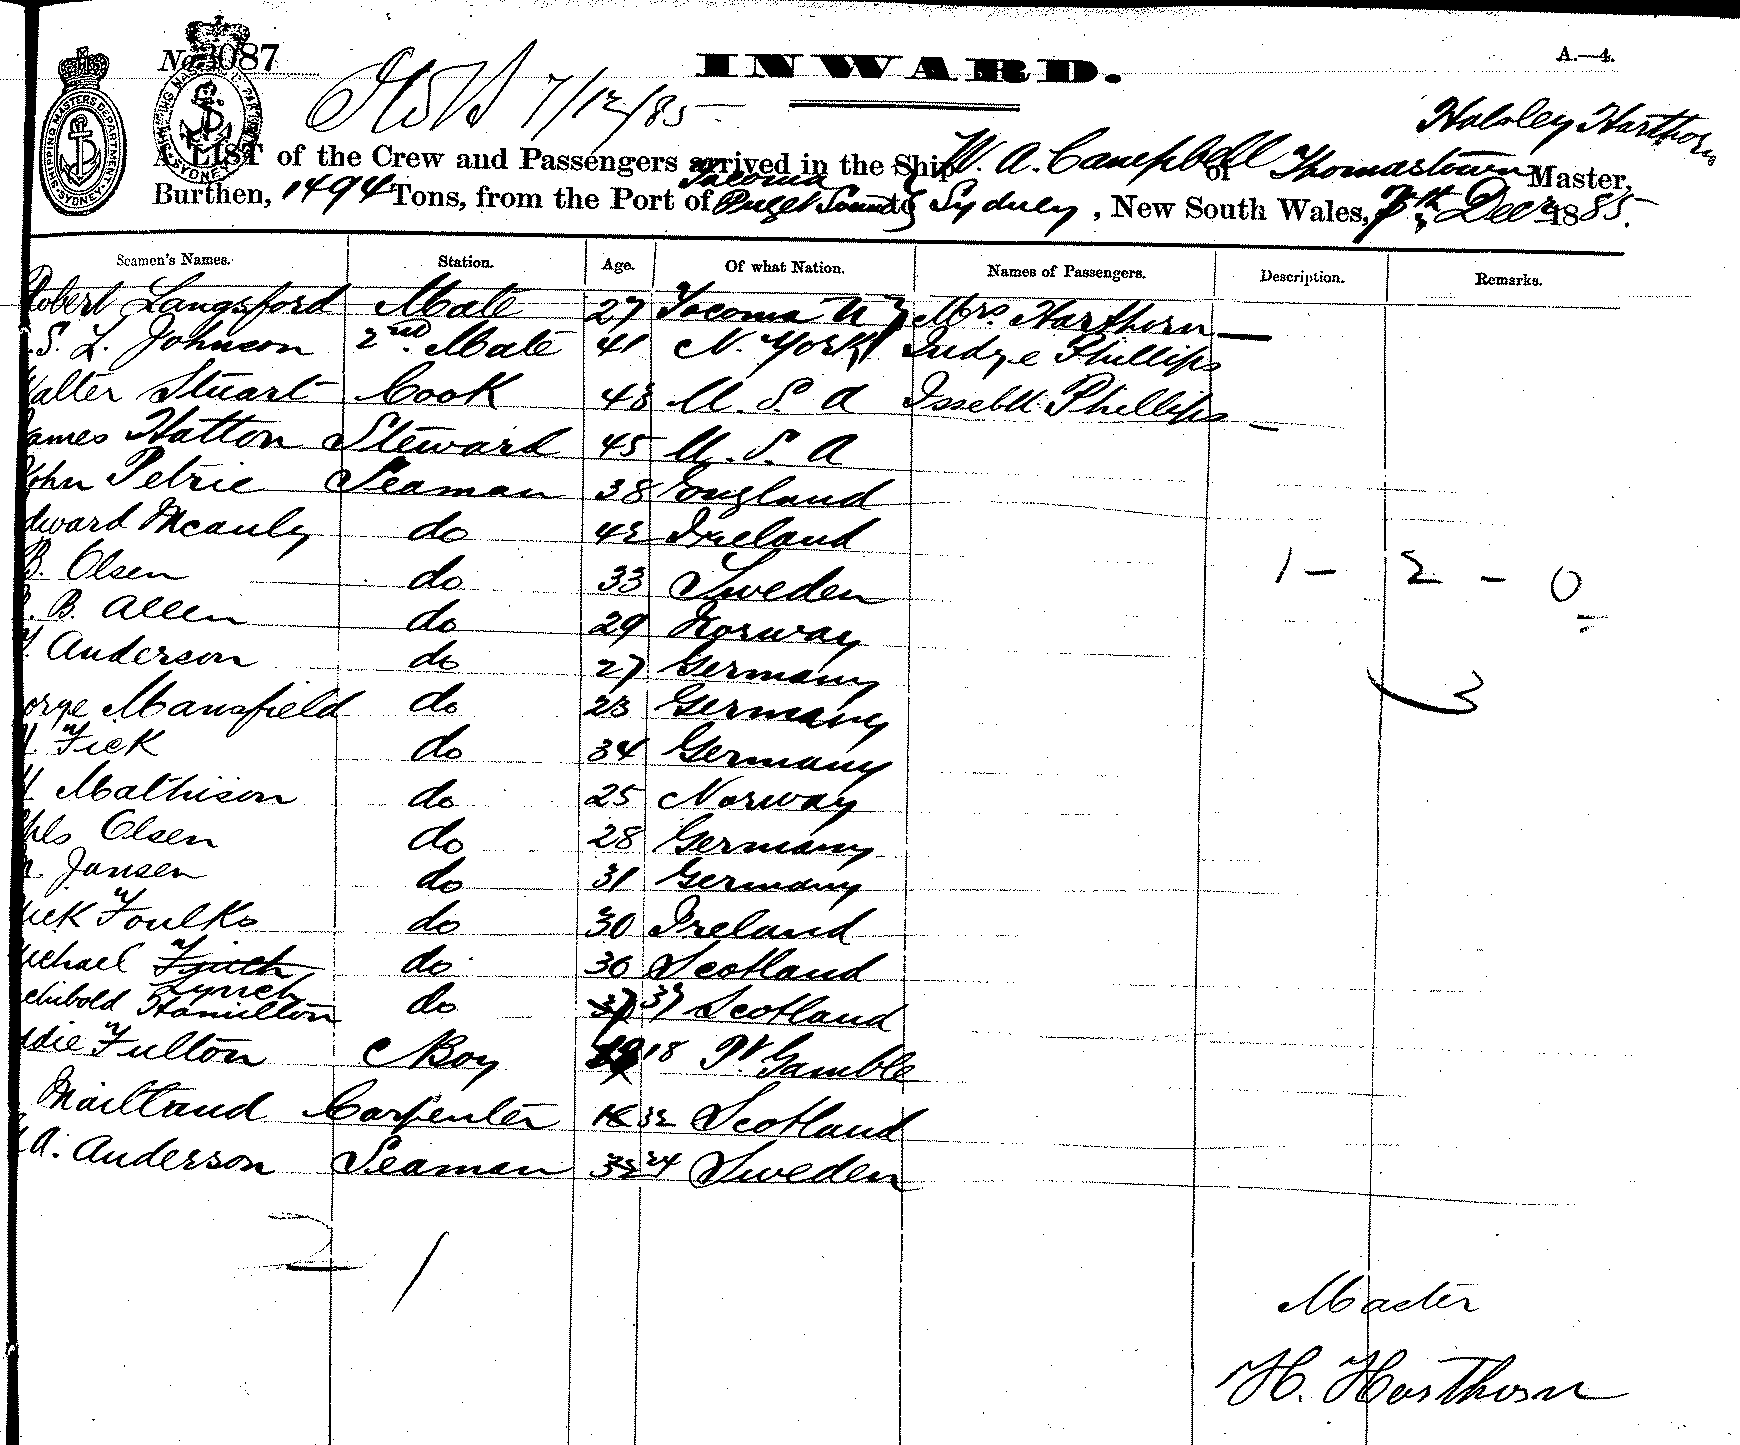 No. 3087
INWARD.
A.—4.
7/12/85
Halsley Harthorn
A LIST of the Crew and Passengers arrived in the Ship W. A. Campbell of Thomastown Master,
Burthen, 1494 Tons, from the Port of Tacoma Puget Sound to Sydney, New South Wales, 7th Decr 1885.
Seamen's Names. Station. Age. Of what Nation. Names of Passengers. Description. Remarks.
Robert Langsford Mate 27 Tocoma Mrs. Harthorn
S. L. Johnson 2nd Mate 41 N. York Judge Phillips
Walter Stuart Cook 43 U. S. A Phillips
James Hatton Steward 45 U. S. A
John Petrie Seaman 38 England
Edward Mcauly do 42 Ireland
B. Olsen do 33 Sweden
B. Allen do 29 Norway
Anderson do 27 Germany
orge Mansfield do 23 Germany
Fick do 34 Germany
Mathison do 25 Norway
Olsen do 28 Germany
Jansen do 31 Germany
Foulks do 30 Ireland
Michael Lynch do 30 Scotland
chibold Hamilton do 37 Scotland
ddie Fulton Boy 18 Pt. Gamble
Maitland Carpenter 32 Scotland
A. Anderson Seaman 24 Sweden
1 - 2 - 0
3
2 1
Master
H. Harthorn